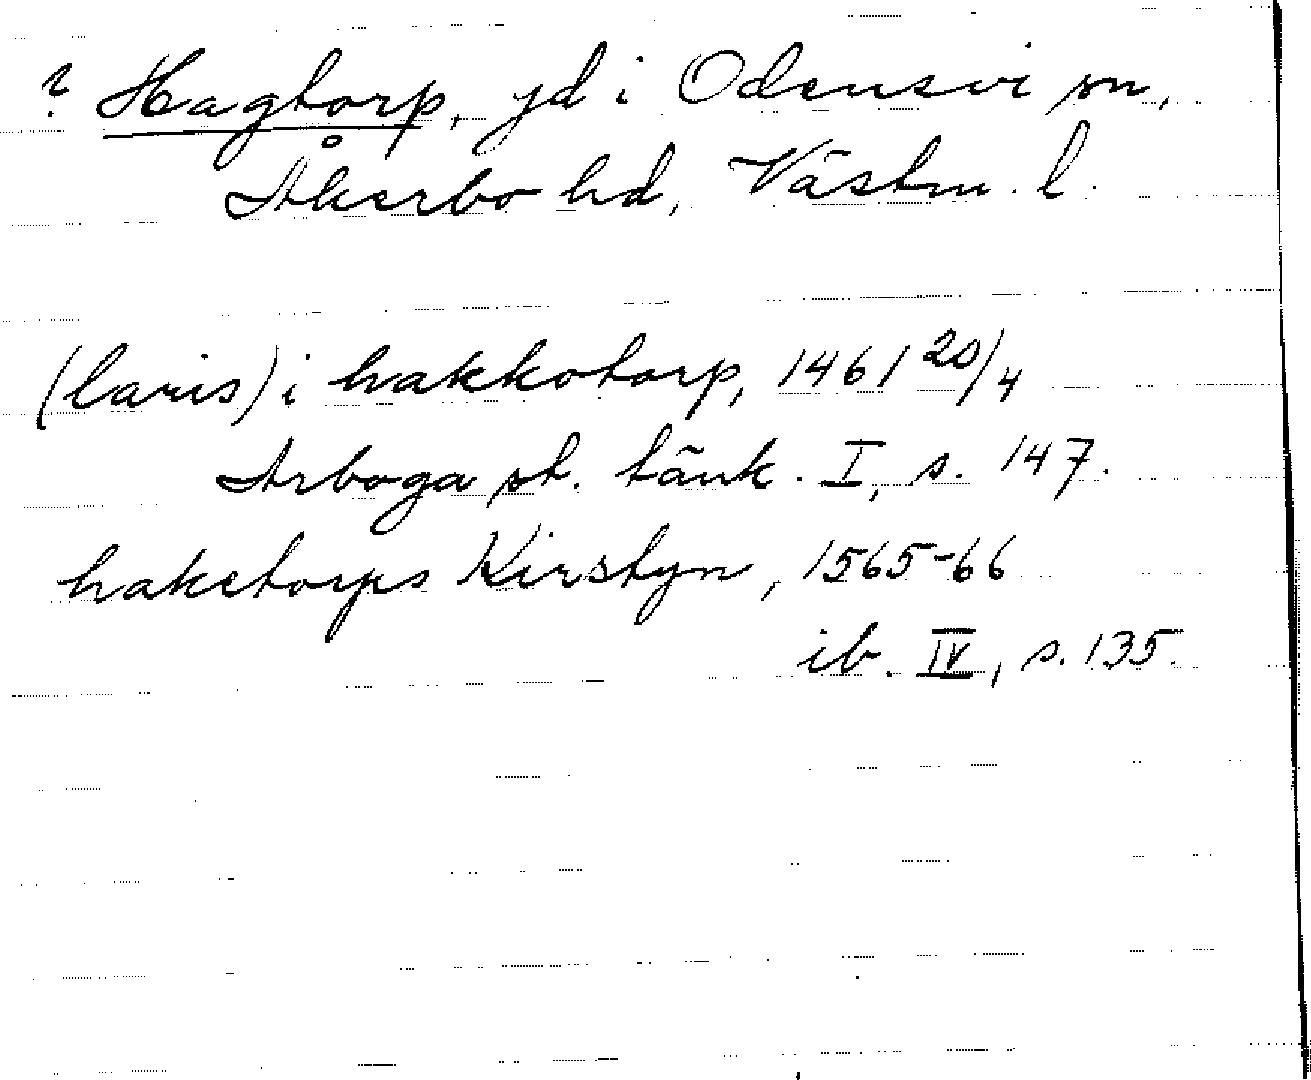 ? Hagtorp, jd i Odensvi sn,
Åkerbo hd, Västm. l.
(laris) i hakkotorp, 1461 20/4
Arboga st. tänk. I, s. 147.
haketorps Kirstyn, 1565-66
ib. IV, s. 135.